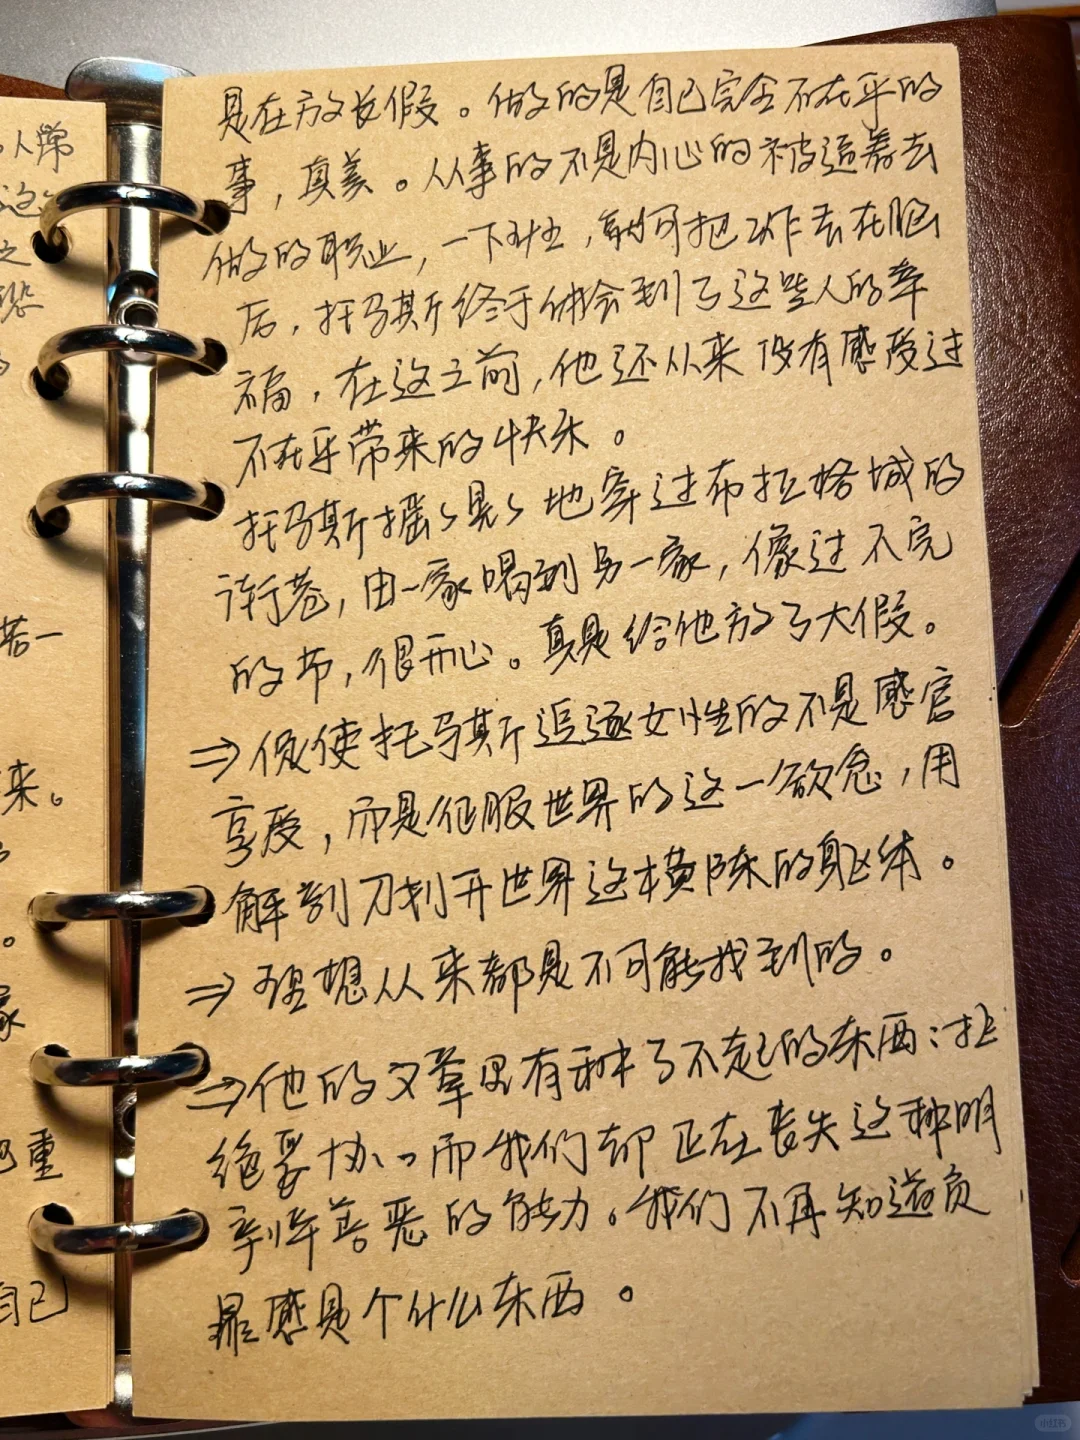 人常
这
之
恐
若一
来。
。
家
重
自己
是在放长假。做的是自己完全不在乎的
事，真美。从事的不是内心的被逼着去
做的职业，一下班，就可把工作丢在脑
后，托马斯终于体会到了这些人的幸
福，在这之前，他还从来没有感受过
不在乎带来的快乐。
托马斯摇摇晃晃地穿过布拉格城的
街巷，由一家喝到另一家，像过不完
的节，很开心。真是给他放了大假。
⇒促使托马斯追逐女性的不是感官
享受，而是征服世界的这一欲念，用
解剖刀划开世界这横陈的躯体。
⇒理想从来都是不可能找到的。
⇒他的文章里有种了不起的东西：拒
绝妥协。而我们却正在丧失这种明
判善恶的能力。我们不再知道负
罪感是个什么东西。
小红书